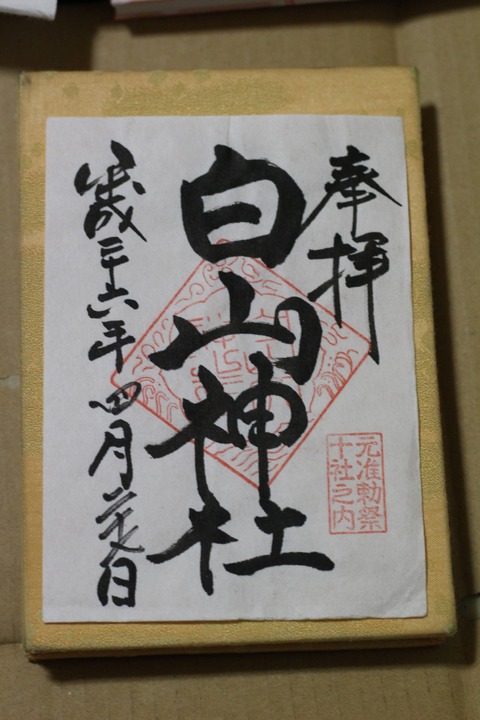 奉拝
元准勅祭
十社之内
白山神社
平成二十六年四月日